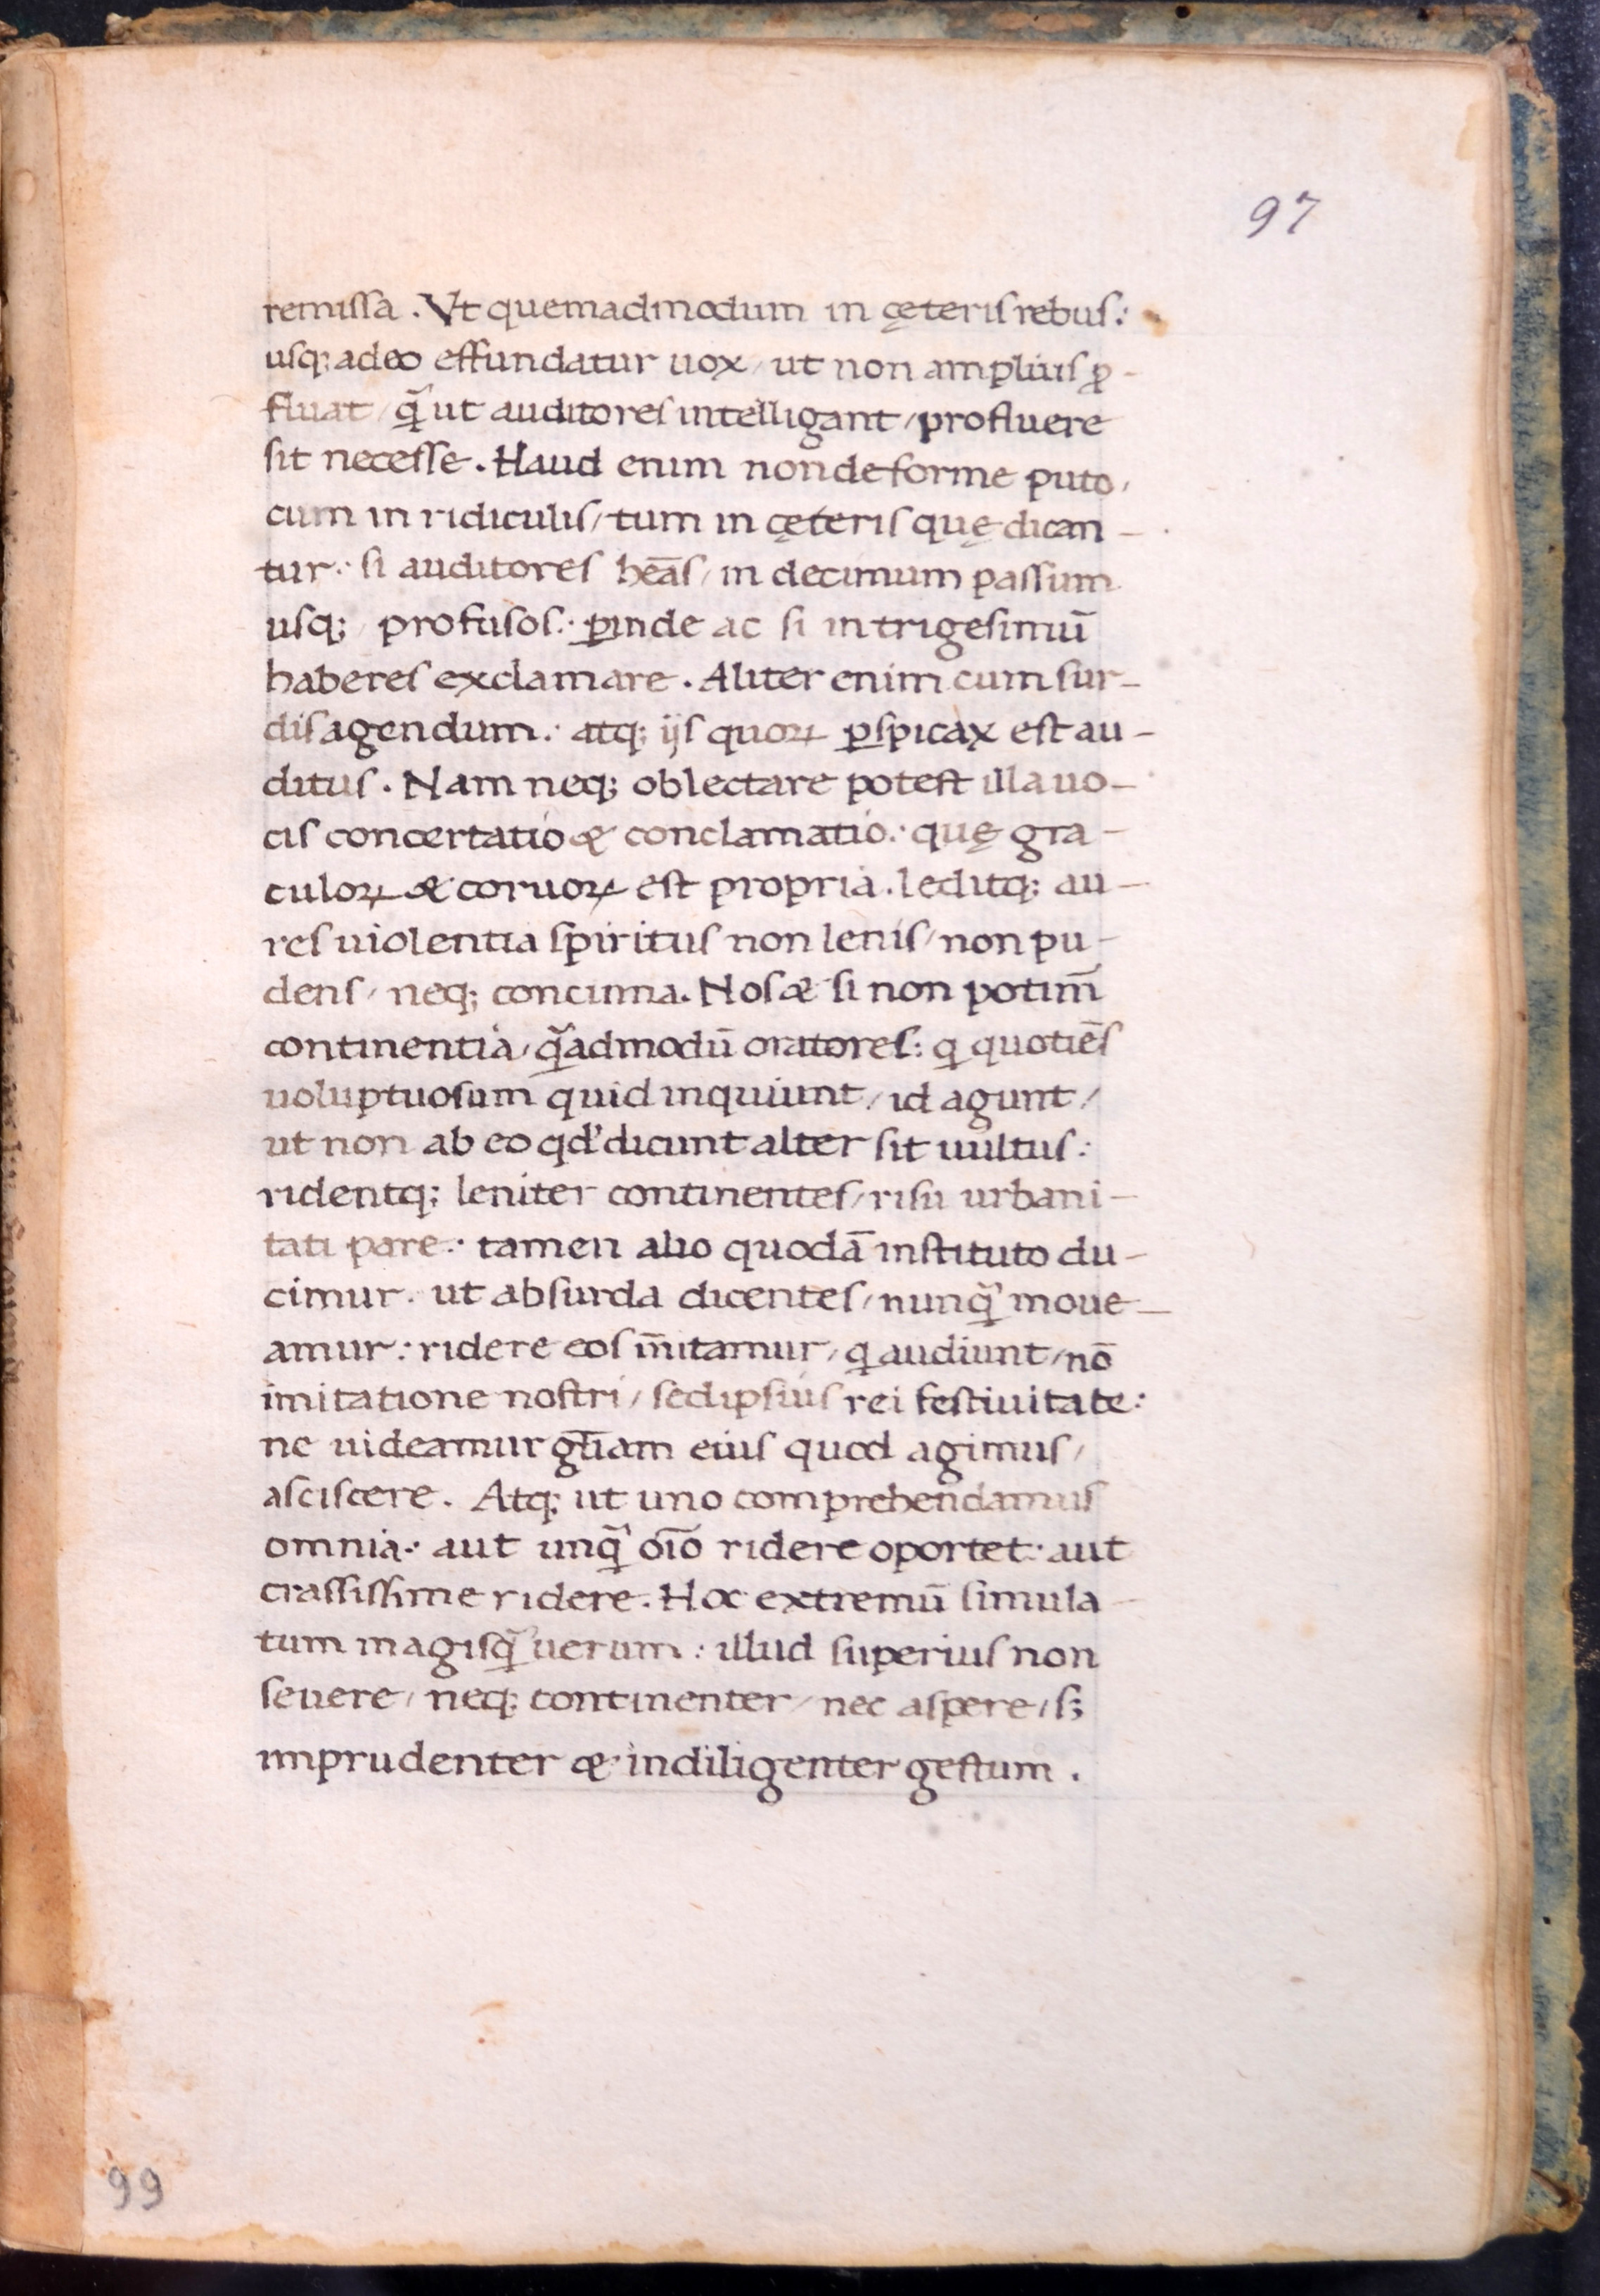 97
remissa . Vt quemadmodum in cęteris rebus :
usq; adeo effundatur uox / ut non amplius ꝓ -
fluat / q̃ ut auditores intelligant / profluere
sit necesse . Haud enim non deforme puto /
cum in ridiculis / tum in cęteris quę dican -
tur : si auditores hēas / in decimum passum
usq; / profusos : ꝑinde ac si in trigesimū
haberes exclamare . Aliter enim cum sur -
dis agendum : atq; ijs quoꝝ ꝑspicax est au -
ditus . Nam neq; oblectare potest illa uo -
cis concertatio & conclamatio : quę gra -
culoꝝ & coruoꝝ est propria . leditq; au -
res uiolentia spiritus non lenis / non pu -
dens / neq; concinna . Nos & si non potim̄
continentia / q̃admodū oratores : q quotiēs
uoluptuosum quid inquiunt / id agunt /
ut non ab eo qd' dicunt alter sit uultus :
ridentq; leniter continentes / risu urbani -
tati pare : tamen alio quodā instituto du -
cimur . ut absurda dicentes / nunq̃ moue -
amur : ridere eos īnitamur / q audiunt / nō
imitatione nostri / sed ipsius rei festiuitate :
ne uideamur gr̄iam eius quod agimus /
asciscere . Atq; ut uno comprehendamus
omnia : aut unq̃ oīo ridere oportet : aut
crassissime ridere . Hoc extremū simula -
tum magis q̃ uerum : illud superius non
seuere / neq; continenter / nec aspere / s;
imprudenter & indiligenter gestum .
99